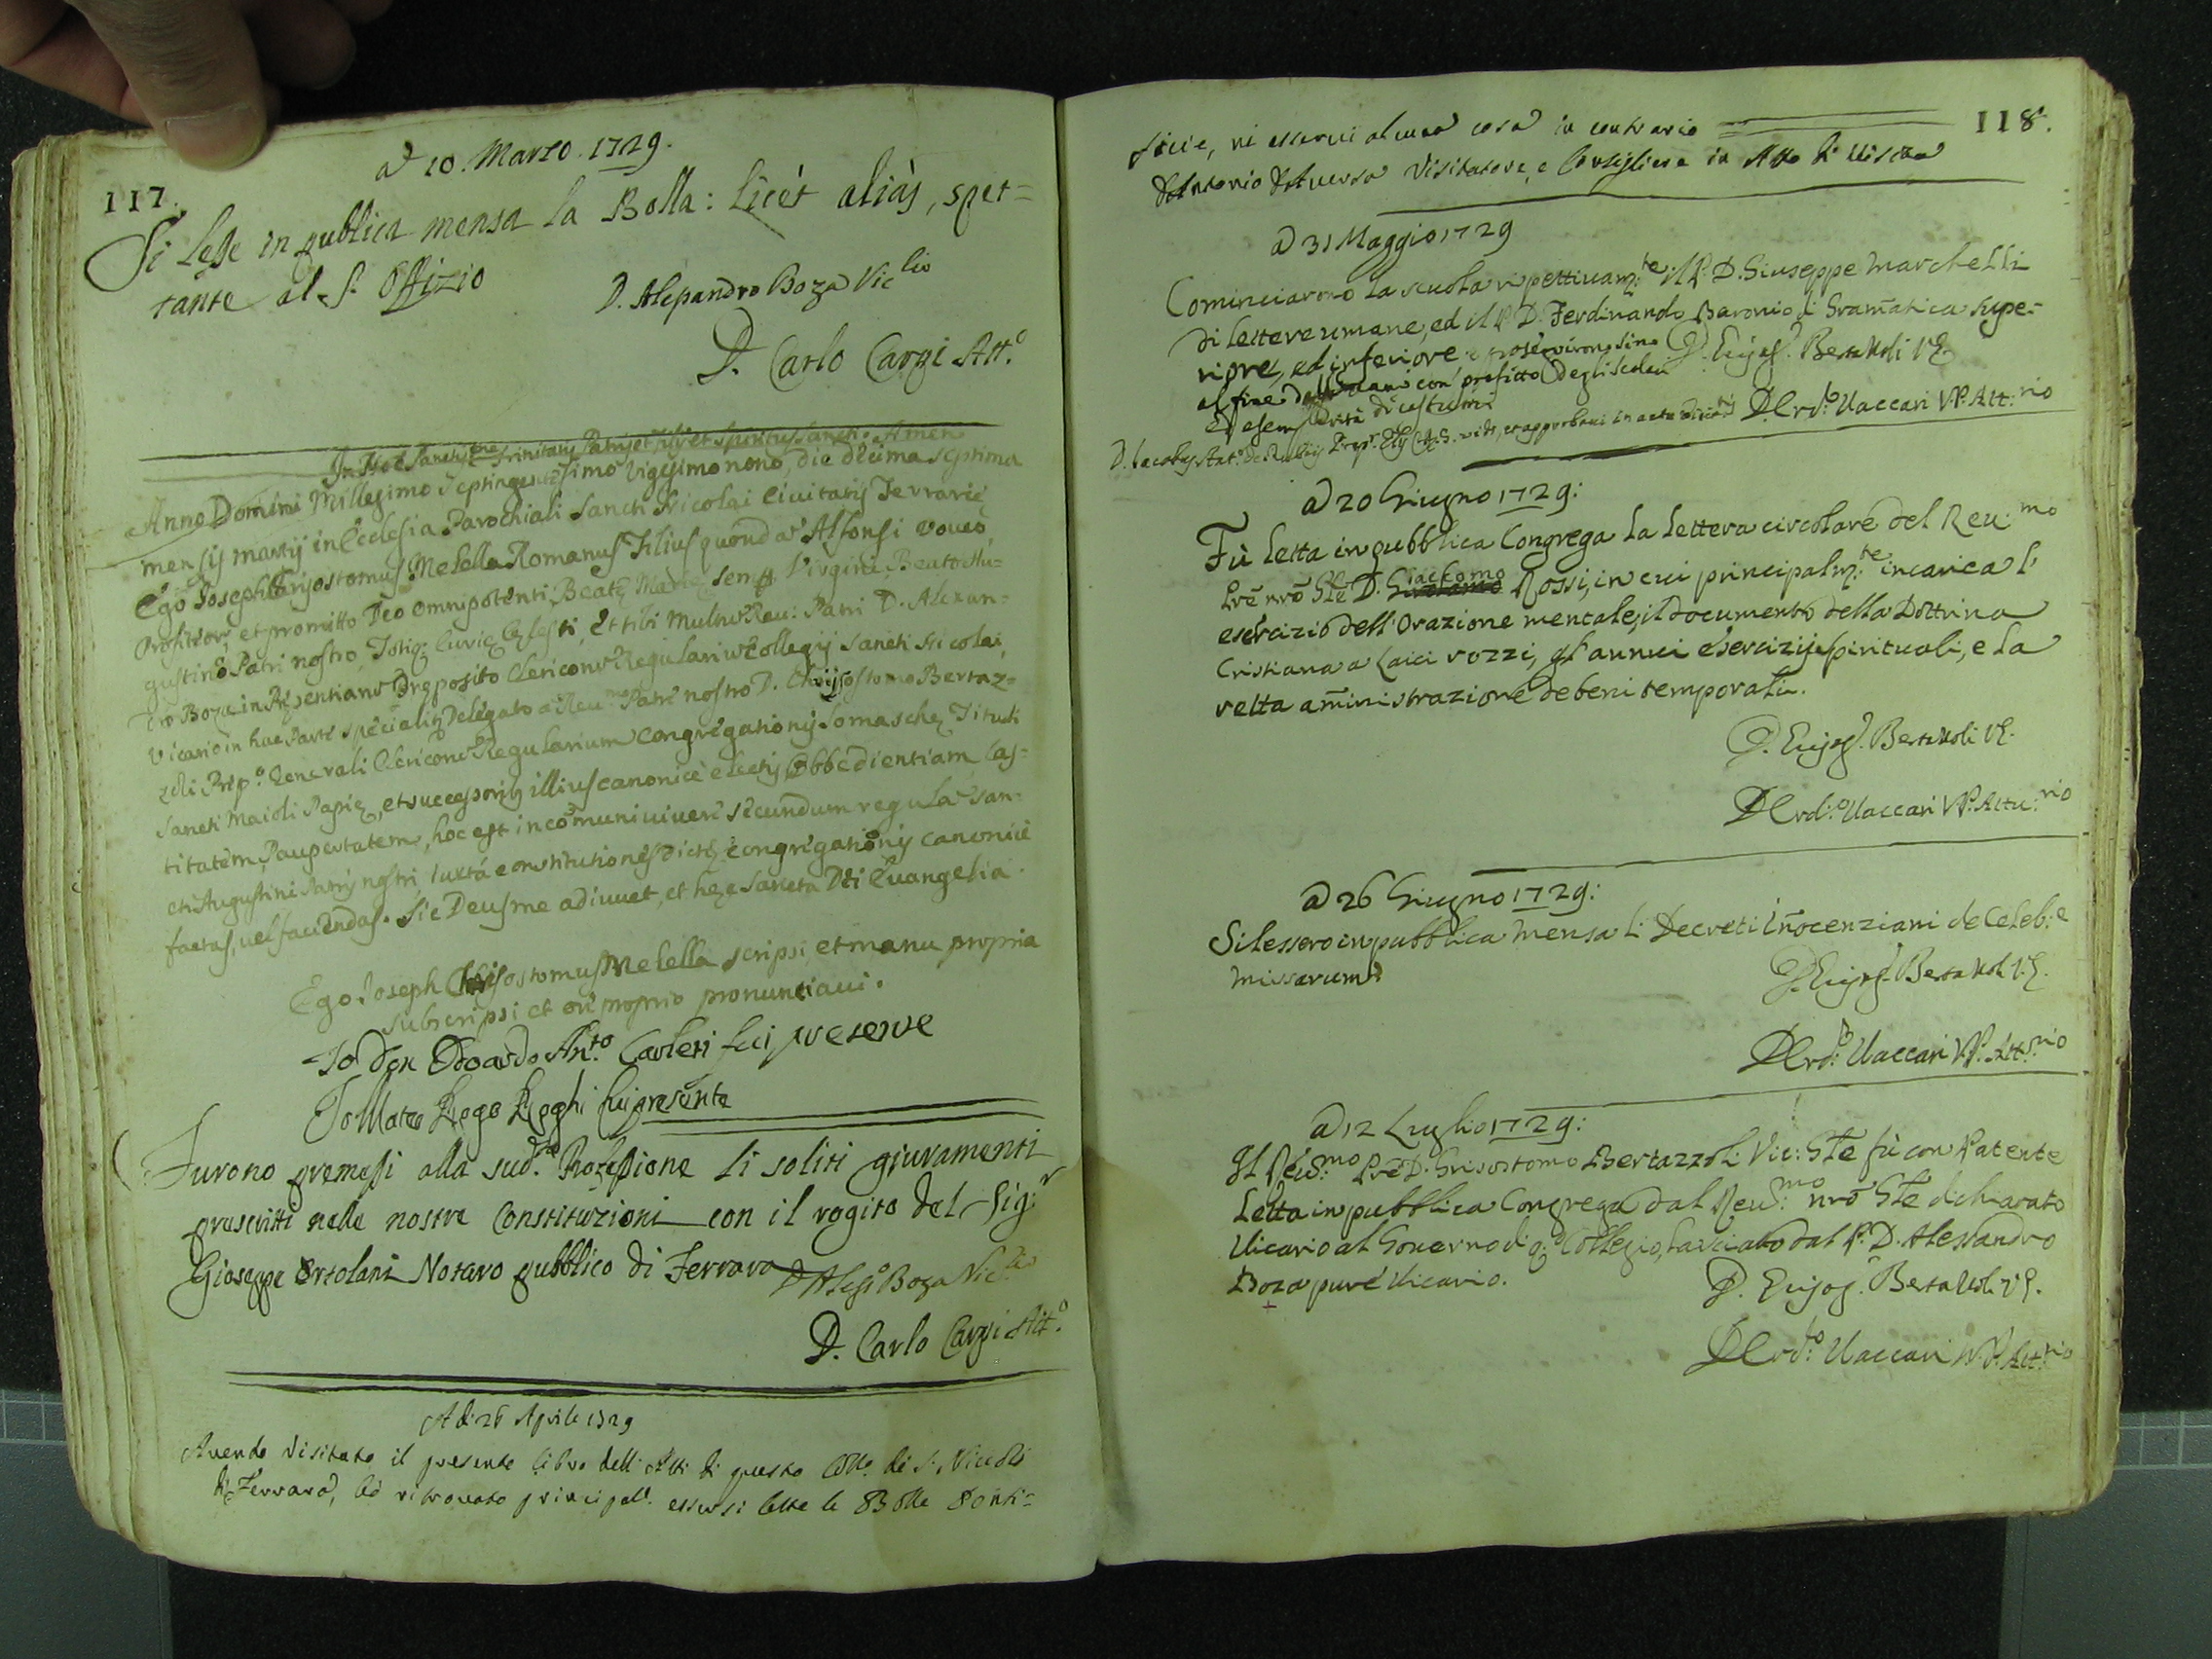 117.
a 10. Marzo. 1729.
Si lesse in publica mensa la Bolla: licét aliàs, spet=
tante al S. Offizio
D. Alesandro Boza Vic.lio
D. Carlo Carpi Att.o
In Noe Sanctissme Trinitatis Patris et Filij et Spiritus Sancti. Amen
Anno Domini Millesimo Septingentesimo Vigesimo nono, die decima septima
mensis martij in Ecclesia Parochiali Sancti Nicolai Civitatis Ferrarie
Ego Joseph Crisostomus Melella Romanus Filius quondā Alfonsi voveo,
Profiteor, et promitto Deo Omnipotenti, Beatę Marię semp. Virgini, Beato Au=
gustino Patri nostro, Totiq; Curię Cęlesti, Et tibi Multū Reu: Patri D. Alexan=
dro Boza in Pręsentiarū Pręposito Clericorū Regulariū Collegij Sancti Nicolai,
Vicario in hac Parte specialitr Delegato a Reu.mo Patre nostro D. Chrisostomo Bertaz=
zoli Prep.o Generali Clericorū Regularium Congregationis Somaschę Tituli
Sancti Maioli Papię, et successorib. illius canonicè electis Obbedientiam, Cas=
titatem, Paupertatem, hoc est in cōmuni vivere secundum regulā San=
cti Augustini Patris nostri, Iuxtá constitutiones dictę congregationis canonicè
factas, vel faciendas. Sic Deus me adiuvet, et hęc Sancta Dei Evangelia.
Ego Joseph Chrisostomus Melella scripsi, et manu propria
subscripsi et ore proprio pronunciavi.
Io Don Edoardo An.to Carleti fui presente
Io Mateo Lego Leghi fui presente
Furono premessi alla sud.ta Professione li soliti giuramenti
prescritti nelle nostre Constituzioni con il rogito del Sig.r
Gioseppe Ortolani Notaro pubblico di Ferrara
D. Aless.o Boza Vic.lio
D. Carlo Carpi Att.o
A di 26 Aprile 1729
Avendo visitato il presente libro delli Atti di questo Collo. di S. Nicolò
di Ferrara, hò ritrovato principalte. essersi lette le Bolle Ponti=
118.
ficie, nè esservi alcuna cosa in contrario
D. Antonio Visitatore, e Consigliere in Atto di visita
a 31 Maggio 1729
Cominciarono la scuola rispettivam.te il P. D. Giuseppe Marchelli
di lettere umane, ed il P. D. Ferdinando Baronio di Gram̄atica supe=
riore, ed inferiore e proseguirono sino
al fine con profitto degli Scolari
ed di costumi
D. Crijos. Bertazzoli V.G.
D. Erd.o Vaccari V.P. Att:rio
D. Jacobus Ant.s de Rubeis Prep. Glis C.R.S. vidit, et approbavi in actu visitnis
a 20 Giugno 1729:
Fù letta in pubblica Congrega la lettera circolare del Reu.mo
Pre nrō Gle D. Giackomo Rossi, in cui principalm.te incarica l'
esercizio dell'Orazione mentale, il documento della Dottrina
Cristiana a Laici rozzi, gl'annui esercizij spirituali, e la
retta am̄inistrazione de beni temporali.
D. Crijos. Bertazzoli V.G.
D. Erd.o Vaccari V.P. Attu:rio
a 26 Giugno 1729:
Si lessero in pubblica Mensa li Decreti In̄ocenziani de Celeb:e
Missarum
D. Crijos. Bertazzoli V.G.
D. Erd.o Vaccari V.P. Att.rio
a 12 Luglio 1729:
Il Reu.mo Pre D. Grisostomo Bertazzoli Vic: Gle fù con Patente
Letta in pubblica Congrega dal Reu.mo nrō Gle dichiarato
Vicario al Governo di q.o Collegio, lasciato dal P. D. Alessandro
Boza pure Vicario.
D. Crijos. Bertazzoli V.G.
D. Erd.to Vaccari V.P. Att.rio